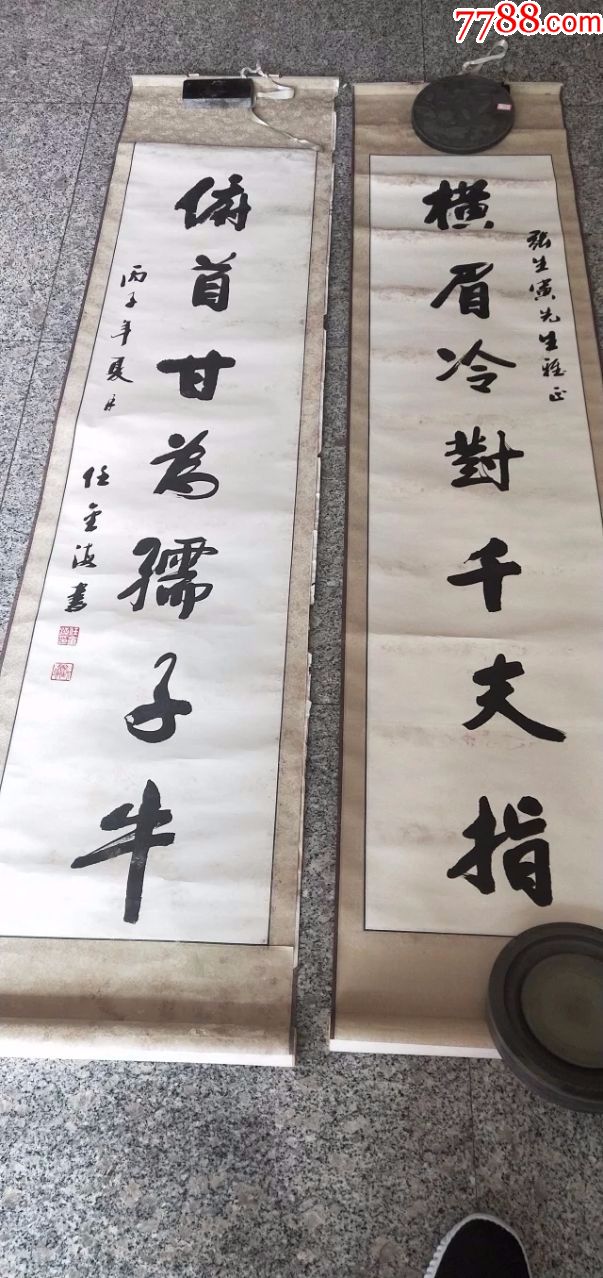 7788.com
橫眉冷對千夫指
張生寅先生雅正
俯首甘為孺子牛
丙子年夏月
任金海書